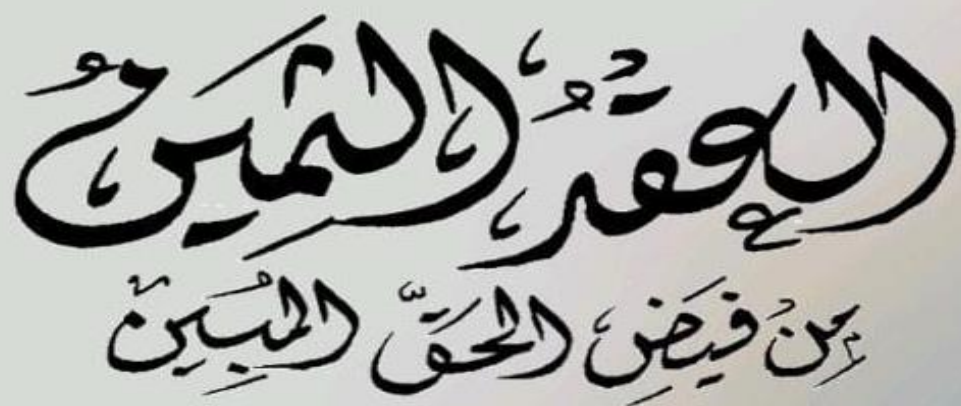 العقدُ الثمينُ
مِنْ فيَضِ الحَقّ المبُيِن